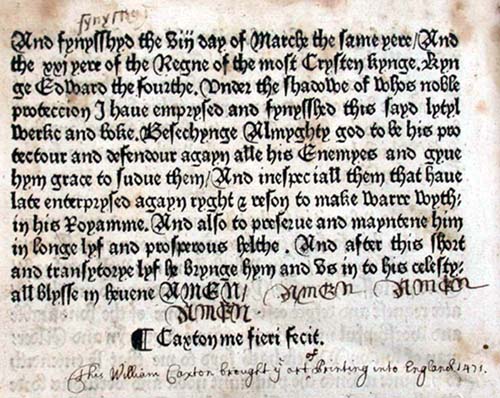 fynysshyd
And fynysshyd the viij day of Marche the same yere/And
the xxj yere of the Regne of the most Crysten kynge. Kyn
ge Edward the fourthe. Vnder the shadowe of whos noble
proteccion J haue emprysed and fynysshed this sayd lytyl
werke and boke. Besechynge Almyghty god to be his pro
tectour and defendour agayn alle his Enemyes and gyue
hym grace to subdue them/ And inespeciall them that haue
late enterprysed agayn ryght & reson to make warre wyth⸗
in his Royamme. And also to preserue and mayntene him
in longe lyf and prosperous helthe. And after this short
and transytorye lyf he brynge hym and vs in to his celesty⸗
all blysse in heuene AMEN/ AMEN AMEN
AMEN
¶ Caxton me fieri fecit.
This William Caxton brought yͤ art of Printing into England. 1471.